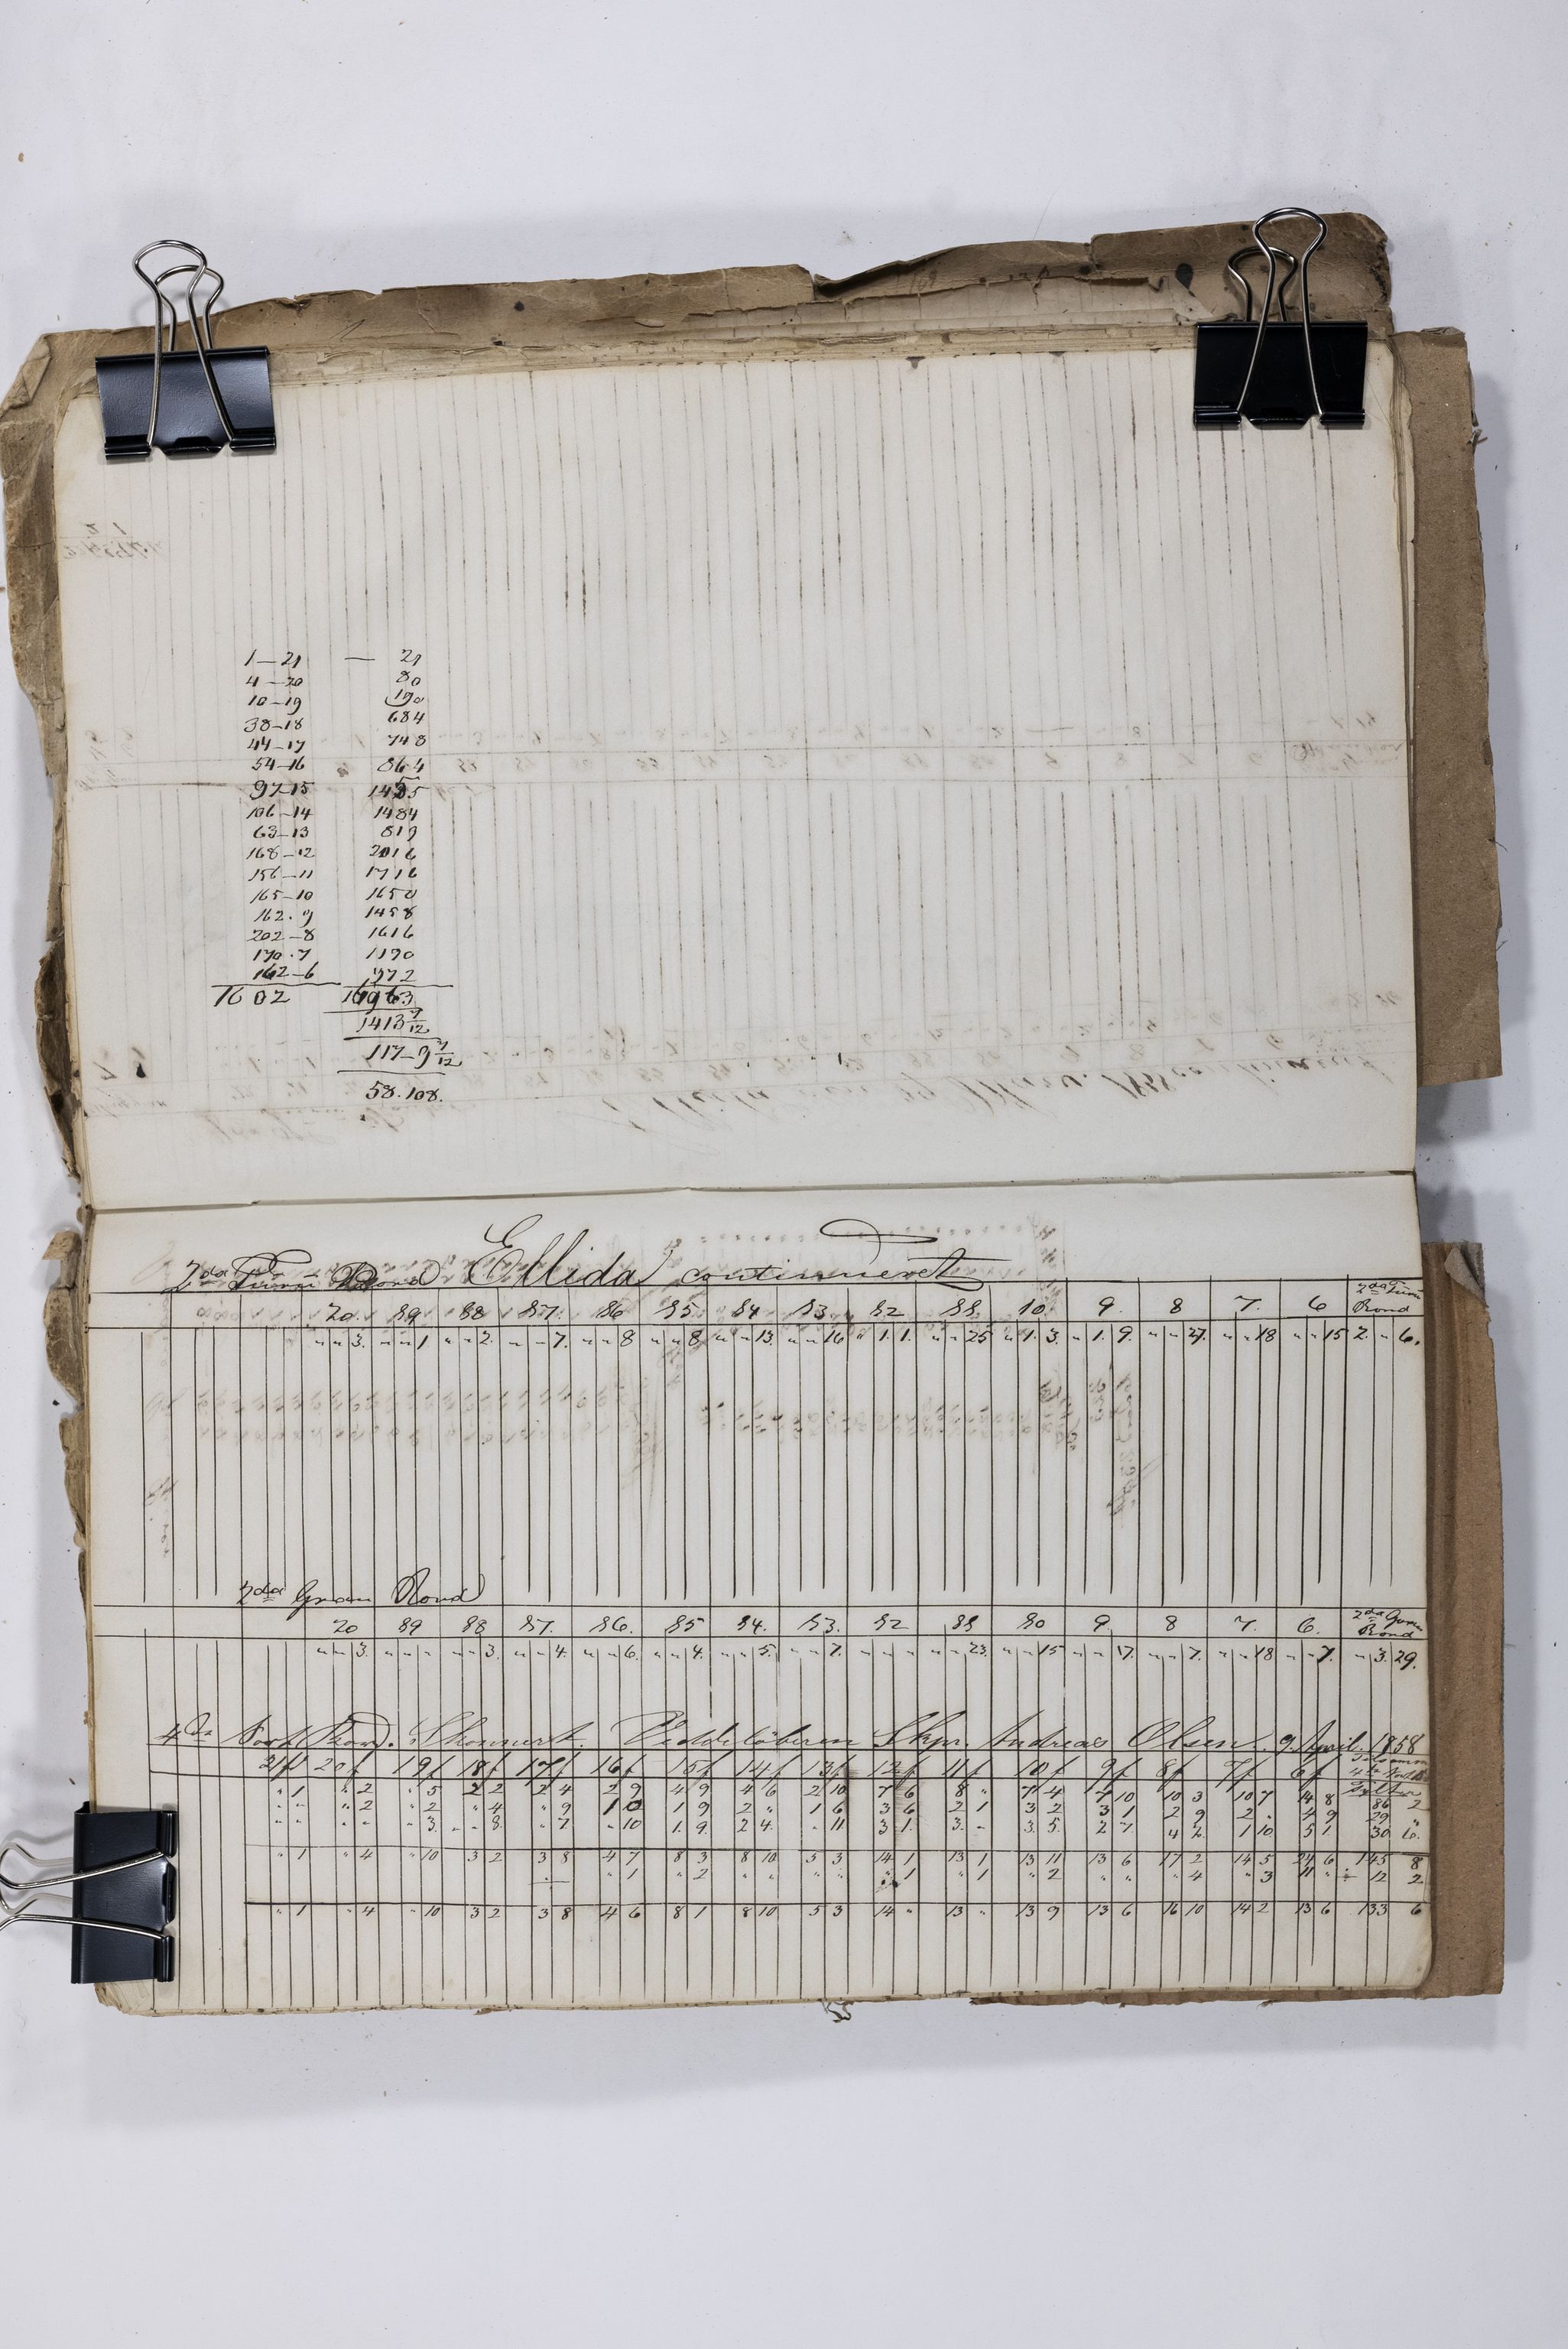 1 — 21 — 21
4 — 20 80
10 — 19 190
38 — 18 684
44 — 17 748
54 — 16 864
97 — 15 1455
106 — 14 1484
63 — 13 819
168 — 12 2016
156 — 11 1716
165 — 10 1650
162 . 9 1458
202 — 8 1616
170 . 7 1190
162 — 6 972
1602 16963
1413 7/12
117 — 9 7/12
58. 108.
Ellida continueret
2da Rond
20. 19 18 17. 16 15. 14 13 12 11. 10. 9. 8 7. 6 2da Rond
" " 3. " " 1 " " 2. " " 7. " " 8 " " 8. " " 13. " " 16 " 1. 1. " " 25 " 1. 3. " 1. 9. " " 27. " " 18 " " 15 2. " 6.
2da Gran Rond
20 19 18 17. 16. 15 14. 13. 12 11 10 9. 8 7. 6. 2da Gran Rond
" " 3. " " " " " 3. " " 4. " " 6. " " 4. " " 5. " " 7. " " " " " 23. " " 15 " " 17. " " 7. " " 18 " " 7. " 3. 29.
Skonnert. Skpr. Andreas Olsen 9. April. 1858
21f 20f 19f 18f 17f 16f 15f 14f 13f 12f 11f 10f 9f 8f 7f 6f
" 1 " 2 " 5 2 2 2 4 2 9 4 9 4 6 2 10 7 6 8 " 7 4 7 10 10 3 10 7 14 8 86 2
" " " 2 " 2 " 4 " 9 1 0 1 9 2 " 1 6 3 6 2 1 3 2 3 1 2 9 2 " 4 9 29 "
" " " " " 3. " 8. " 7 " 10 1. 9. 2 4. " 11 3 1. 3. " 3. 5. 2 7. 4 2. 1 10. 5 1 30 6.
" 1 " 4 " 10 3 2 3 8 4 7 8 3 8 10 5 3 14 1 13 1 13 11 13 6 17 2 14 5 24 6 145 8
" 1 " 2 " " " " " 1 " 1 " 2 " " " 4 " 3 11 " 12 2
" 1 " 4 " 10 3 2 3 8 4 6 8 1 8 10 5 3 14 " 13 " 13 9 13 6 16 10 14 2 13 6 133 6